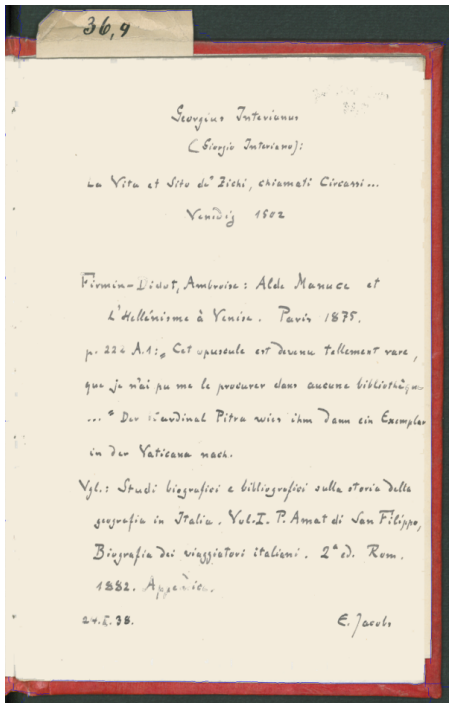 36,9
Georgius Interianus
(Giorgio Interiano):
La Vita et Sito de' Zichi, chiamati Circassi...
Venedig 1502
Firmin-Didot, Ambroise: Alde Manuce et
L'Hellénisme à Venise. Paris 1875.
p. 222 A.1: „Cet opuscule est devenu tellement rare,
que je n'ai pu me le procurer dans aucune bibliothèque
..." Der Kardinal Pitra wies ihm dann ein Exemplar
in der Vaticana nach.
Vgl.: Studi biografici e bibliografici sulla storia della
geografia in Italia. Vol. I. P. Amat di San Filippo,
Biografia dei viaggiatori italiani. 2ª ed. Rom.
1882. Appendice.
24.X.38. E. Jacobs